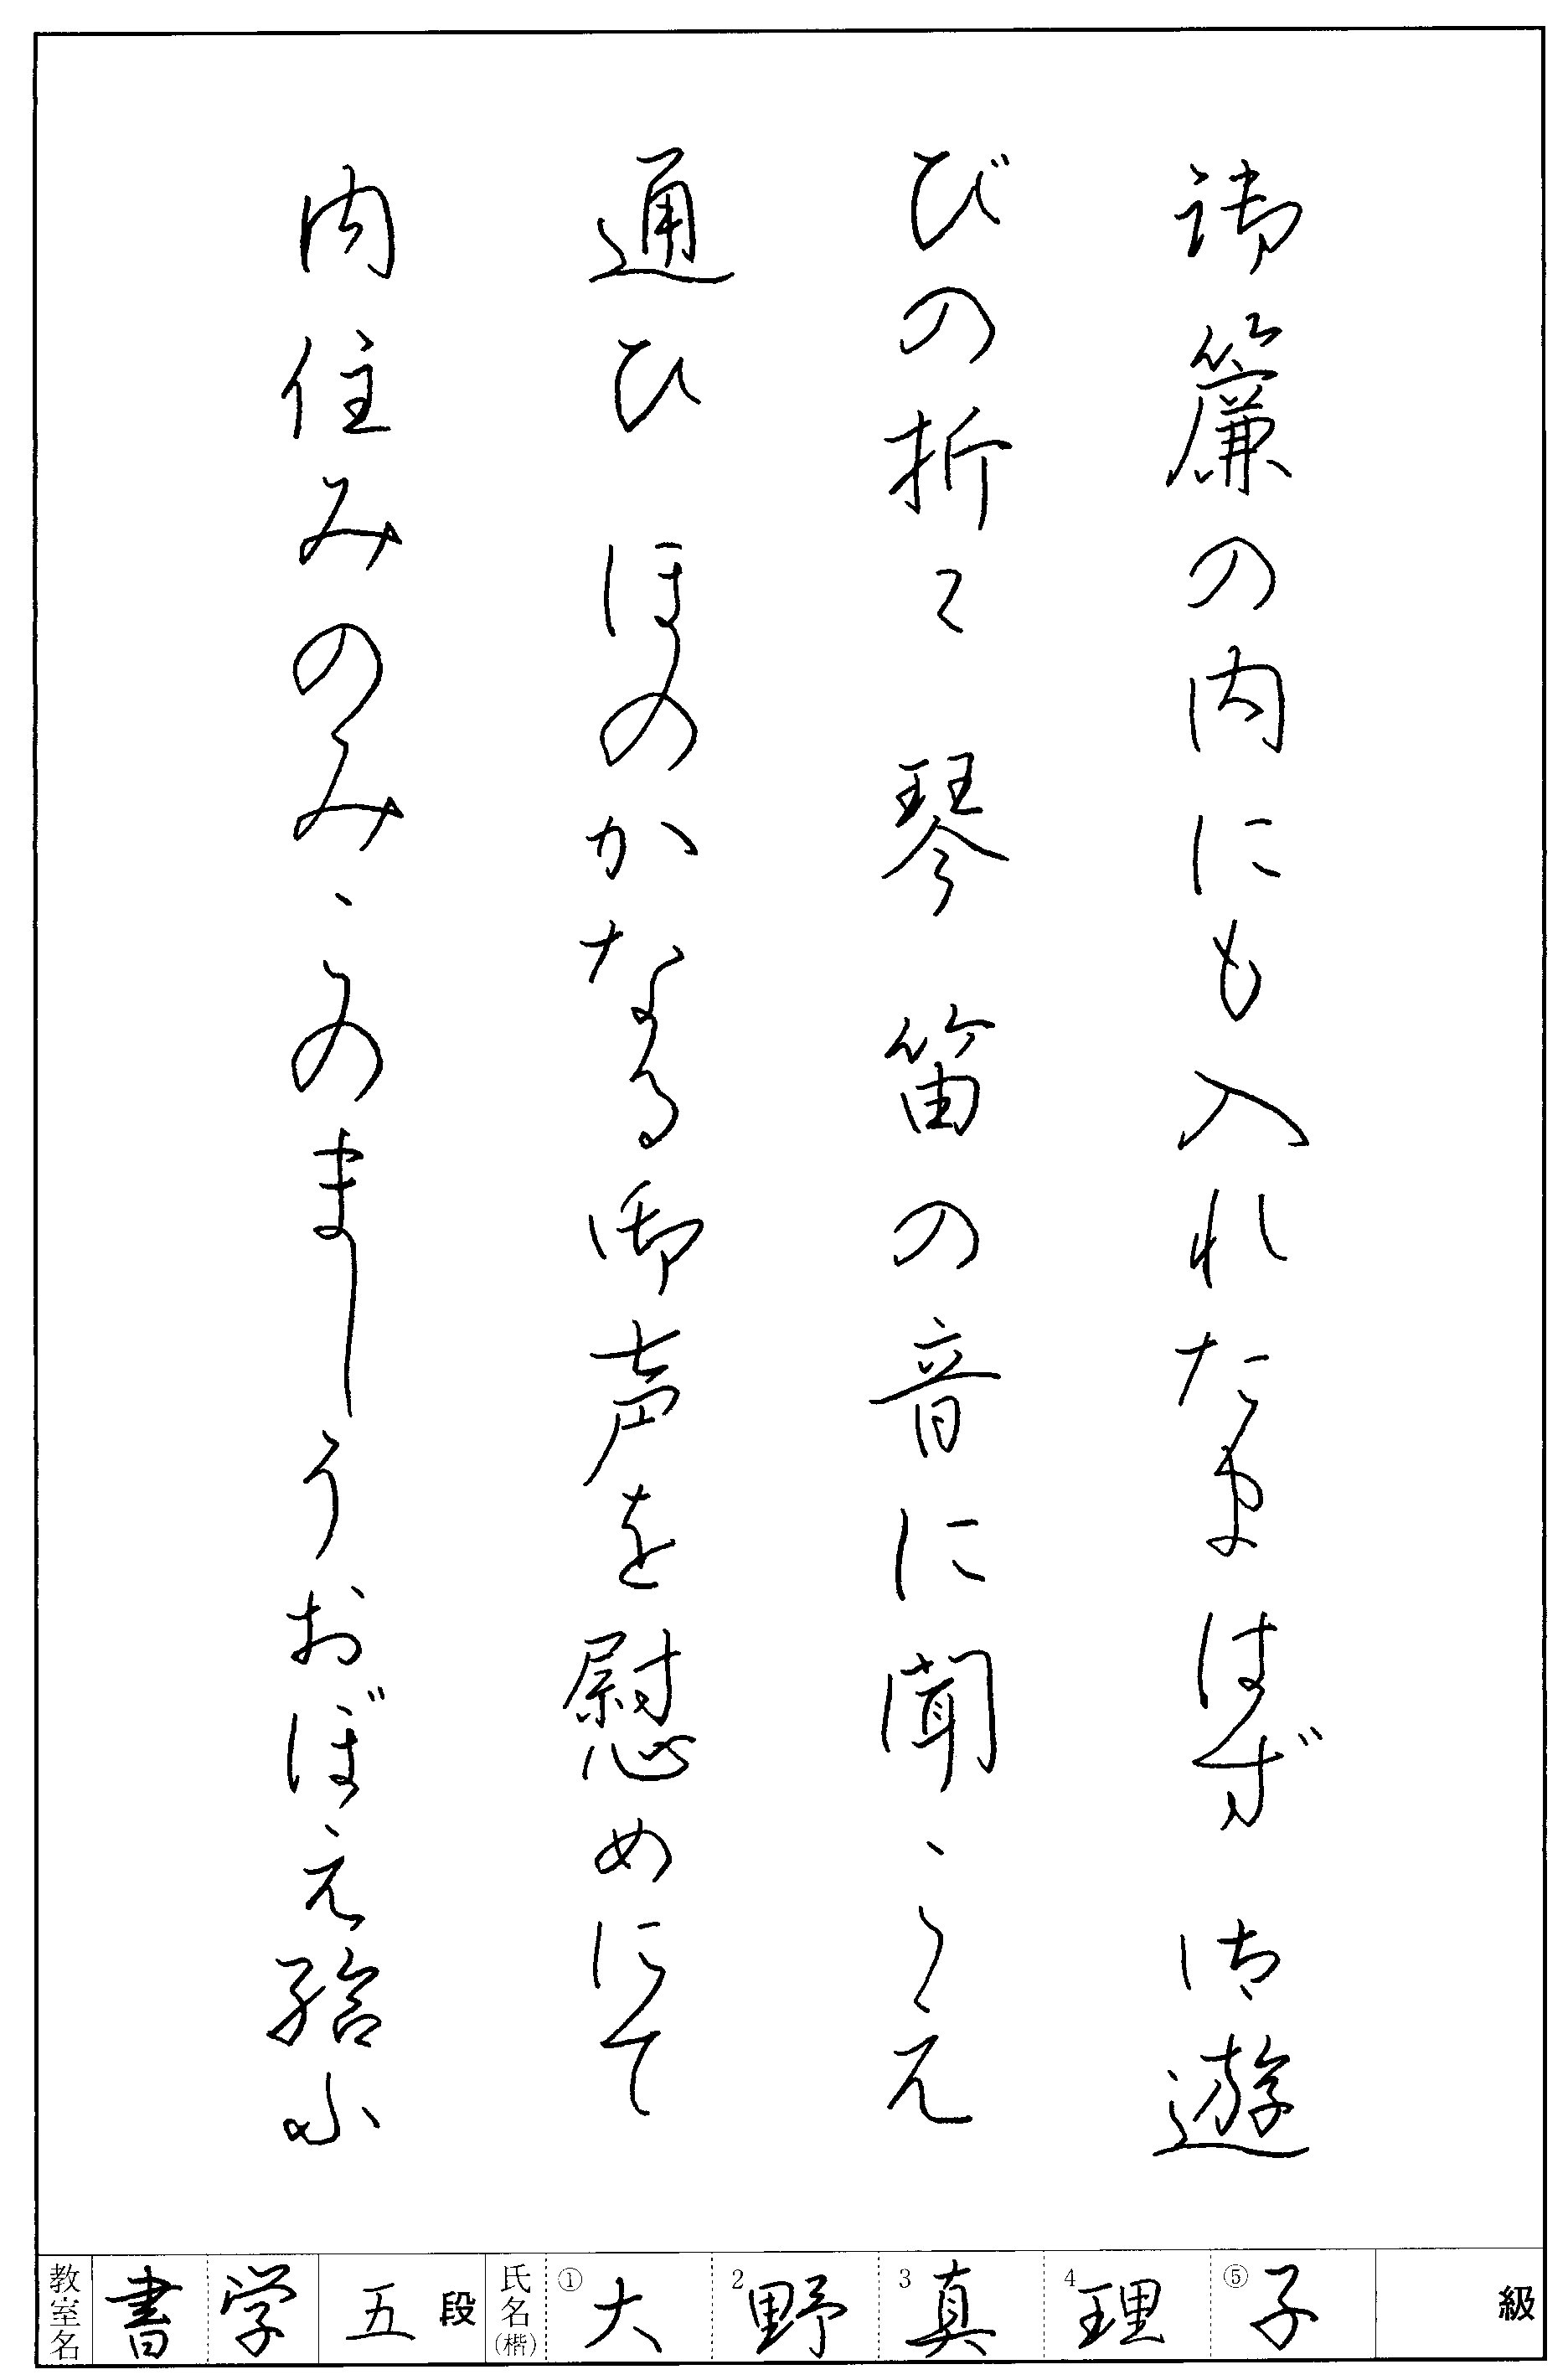 御簾の内にも入れたまはず 御遊
びの折々 琴 笛の音に聞こえ
通ひ ほのかなる御声を慰めにて
内住みのみこのましうおぼえ給ふ
教室名 書学 五段 氏名(楷) ①大 2野 3真 4理 ⑤子 級